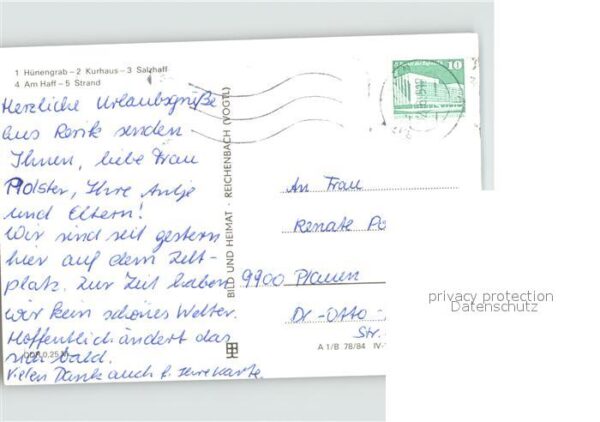 1 Hünengrab – 2 Kurhaus – 3 Salzhaff
4 Am Haff – 5 Strand
Herzliche Urlaubsgrüße
aus Rerik senden
Ihnen, liebe Frau
Polster, Ihre Antje
und Eltern!
Wir sind seit gestern
hier auf dem Zelt-
platz. Zur Zeit haben
wir kein schönes Wetter.
Hoffentlich ändert das
sich bald.
Vielen Dank auch f. Ihre Karte.
DDR 0,25 M
BILD UND HEIMAT · REICHENBACH (VOGTL)
10
An Frau
Renate Po
9900 Plauen
Dr.-Otto-
Str.
A 1/B 78/84 IV-
privacy protection
Datenschutz